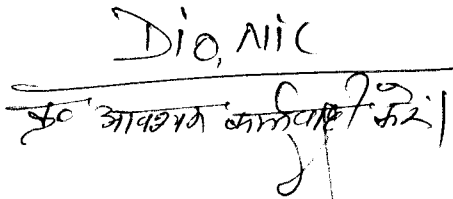 DIO, NIC
कृ० आवश्यक कार्यवाही करें।